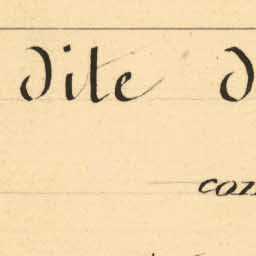 dite d
con